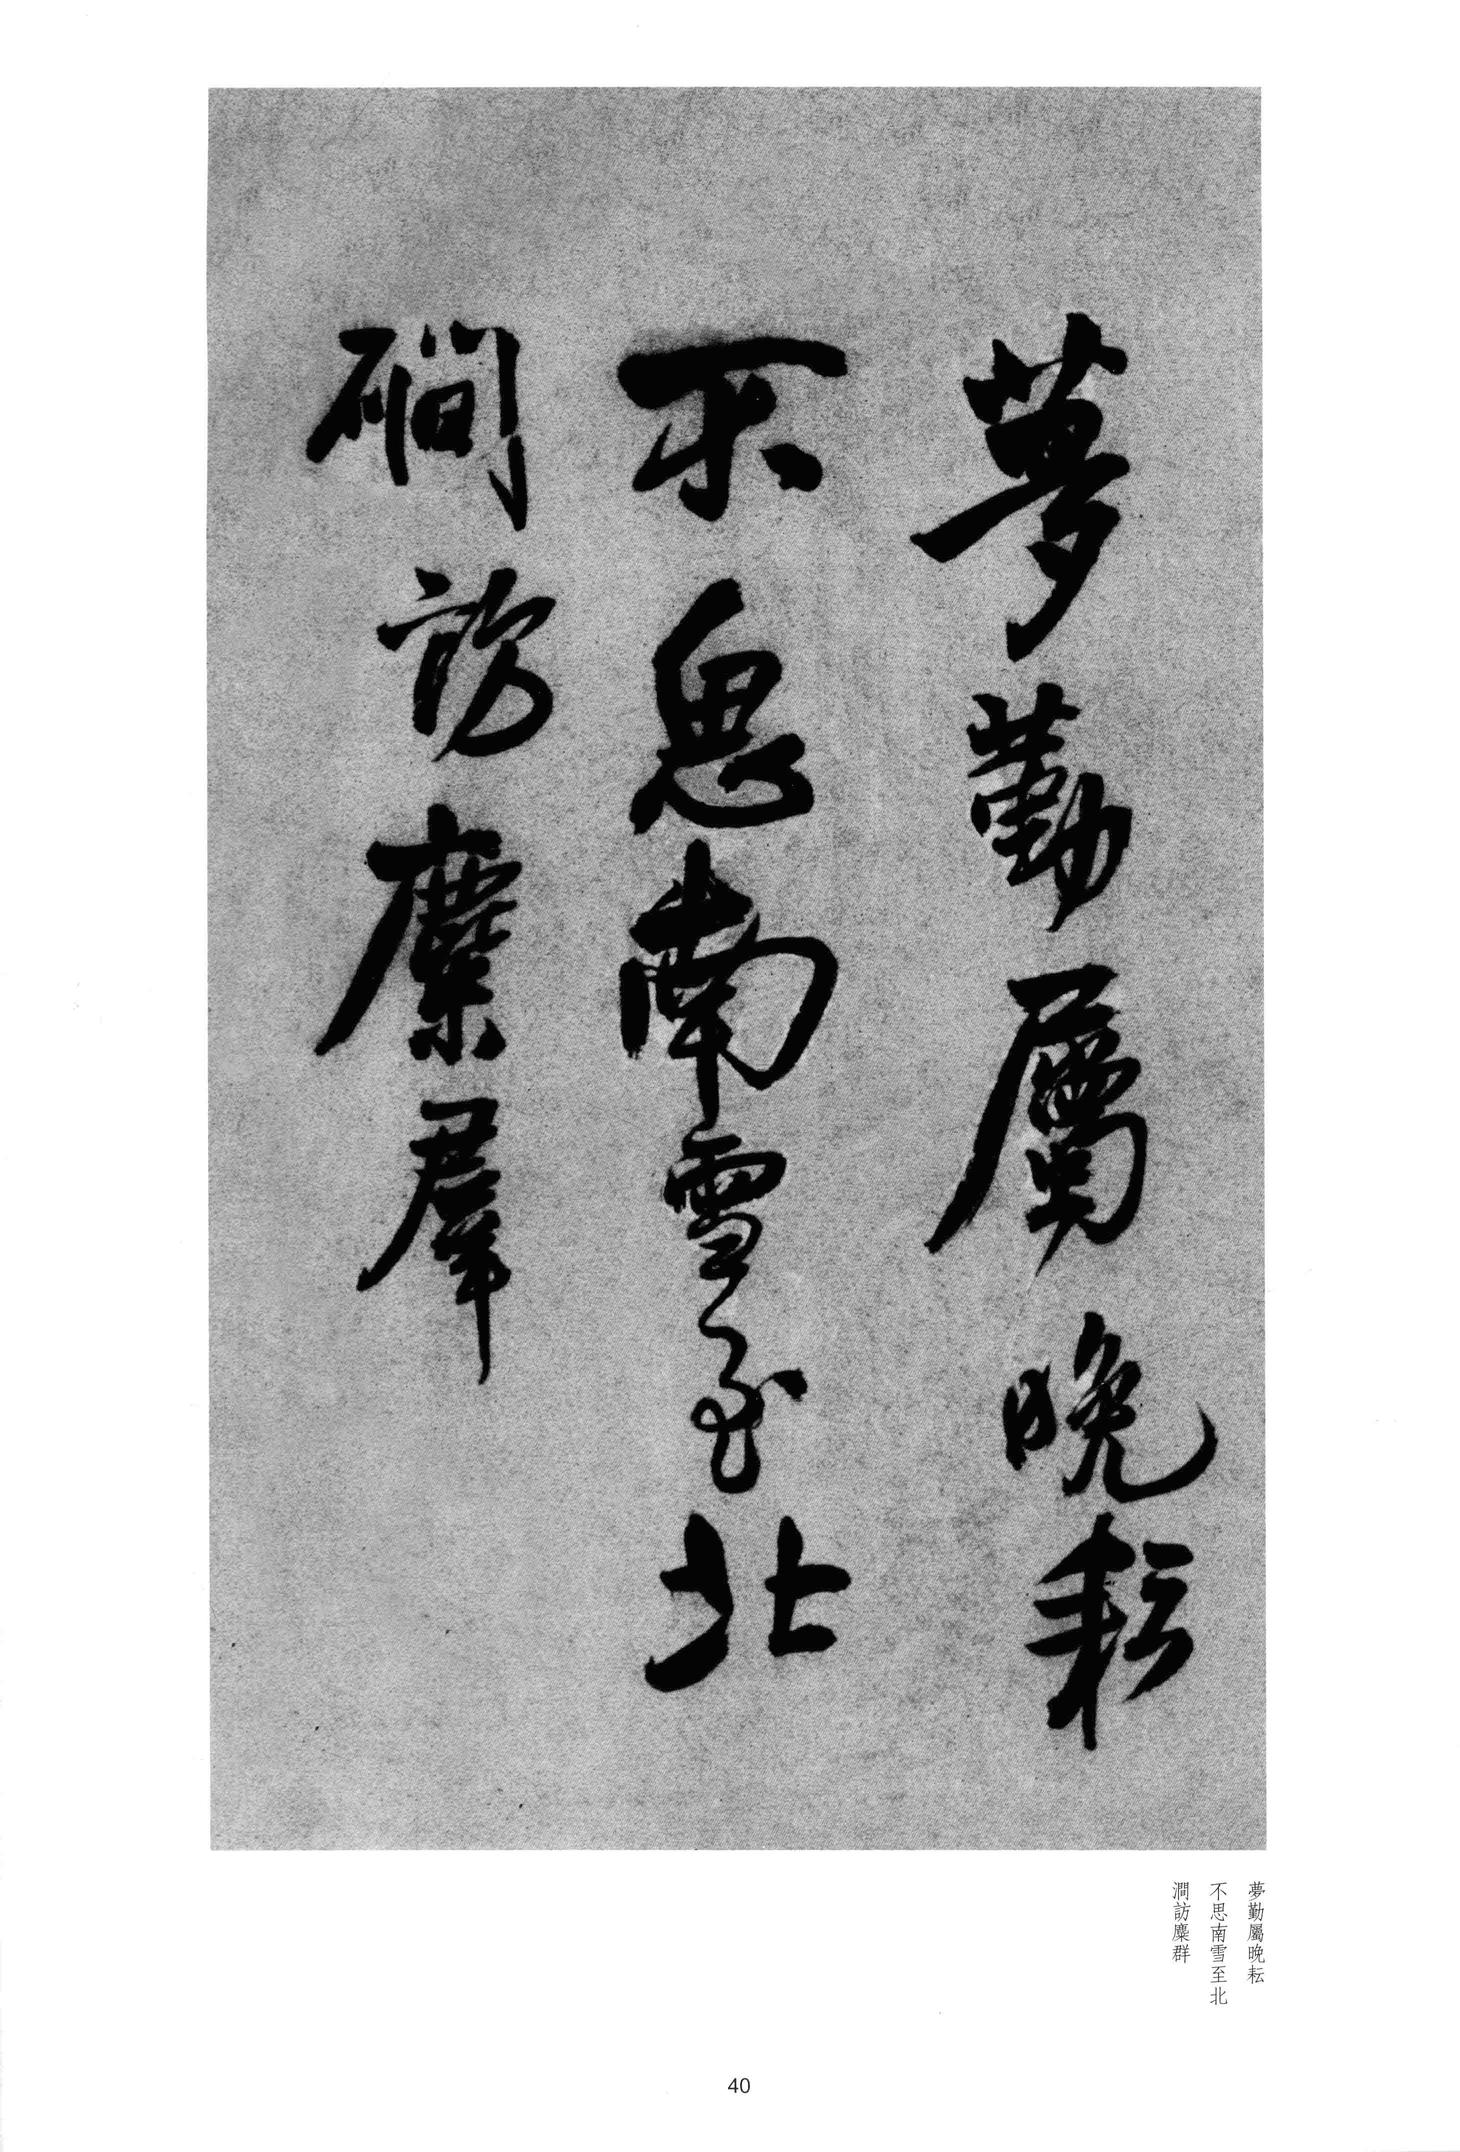 夢勤屬晚耘
不思南雪至北
磵訪麋羣
夢勤屬晚耘
不思南雪至北
澗訪麋群
40